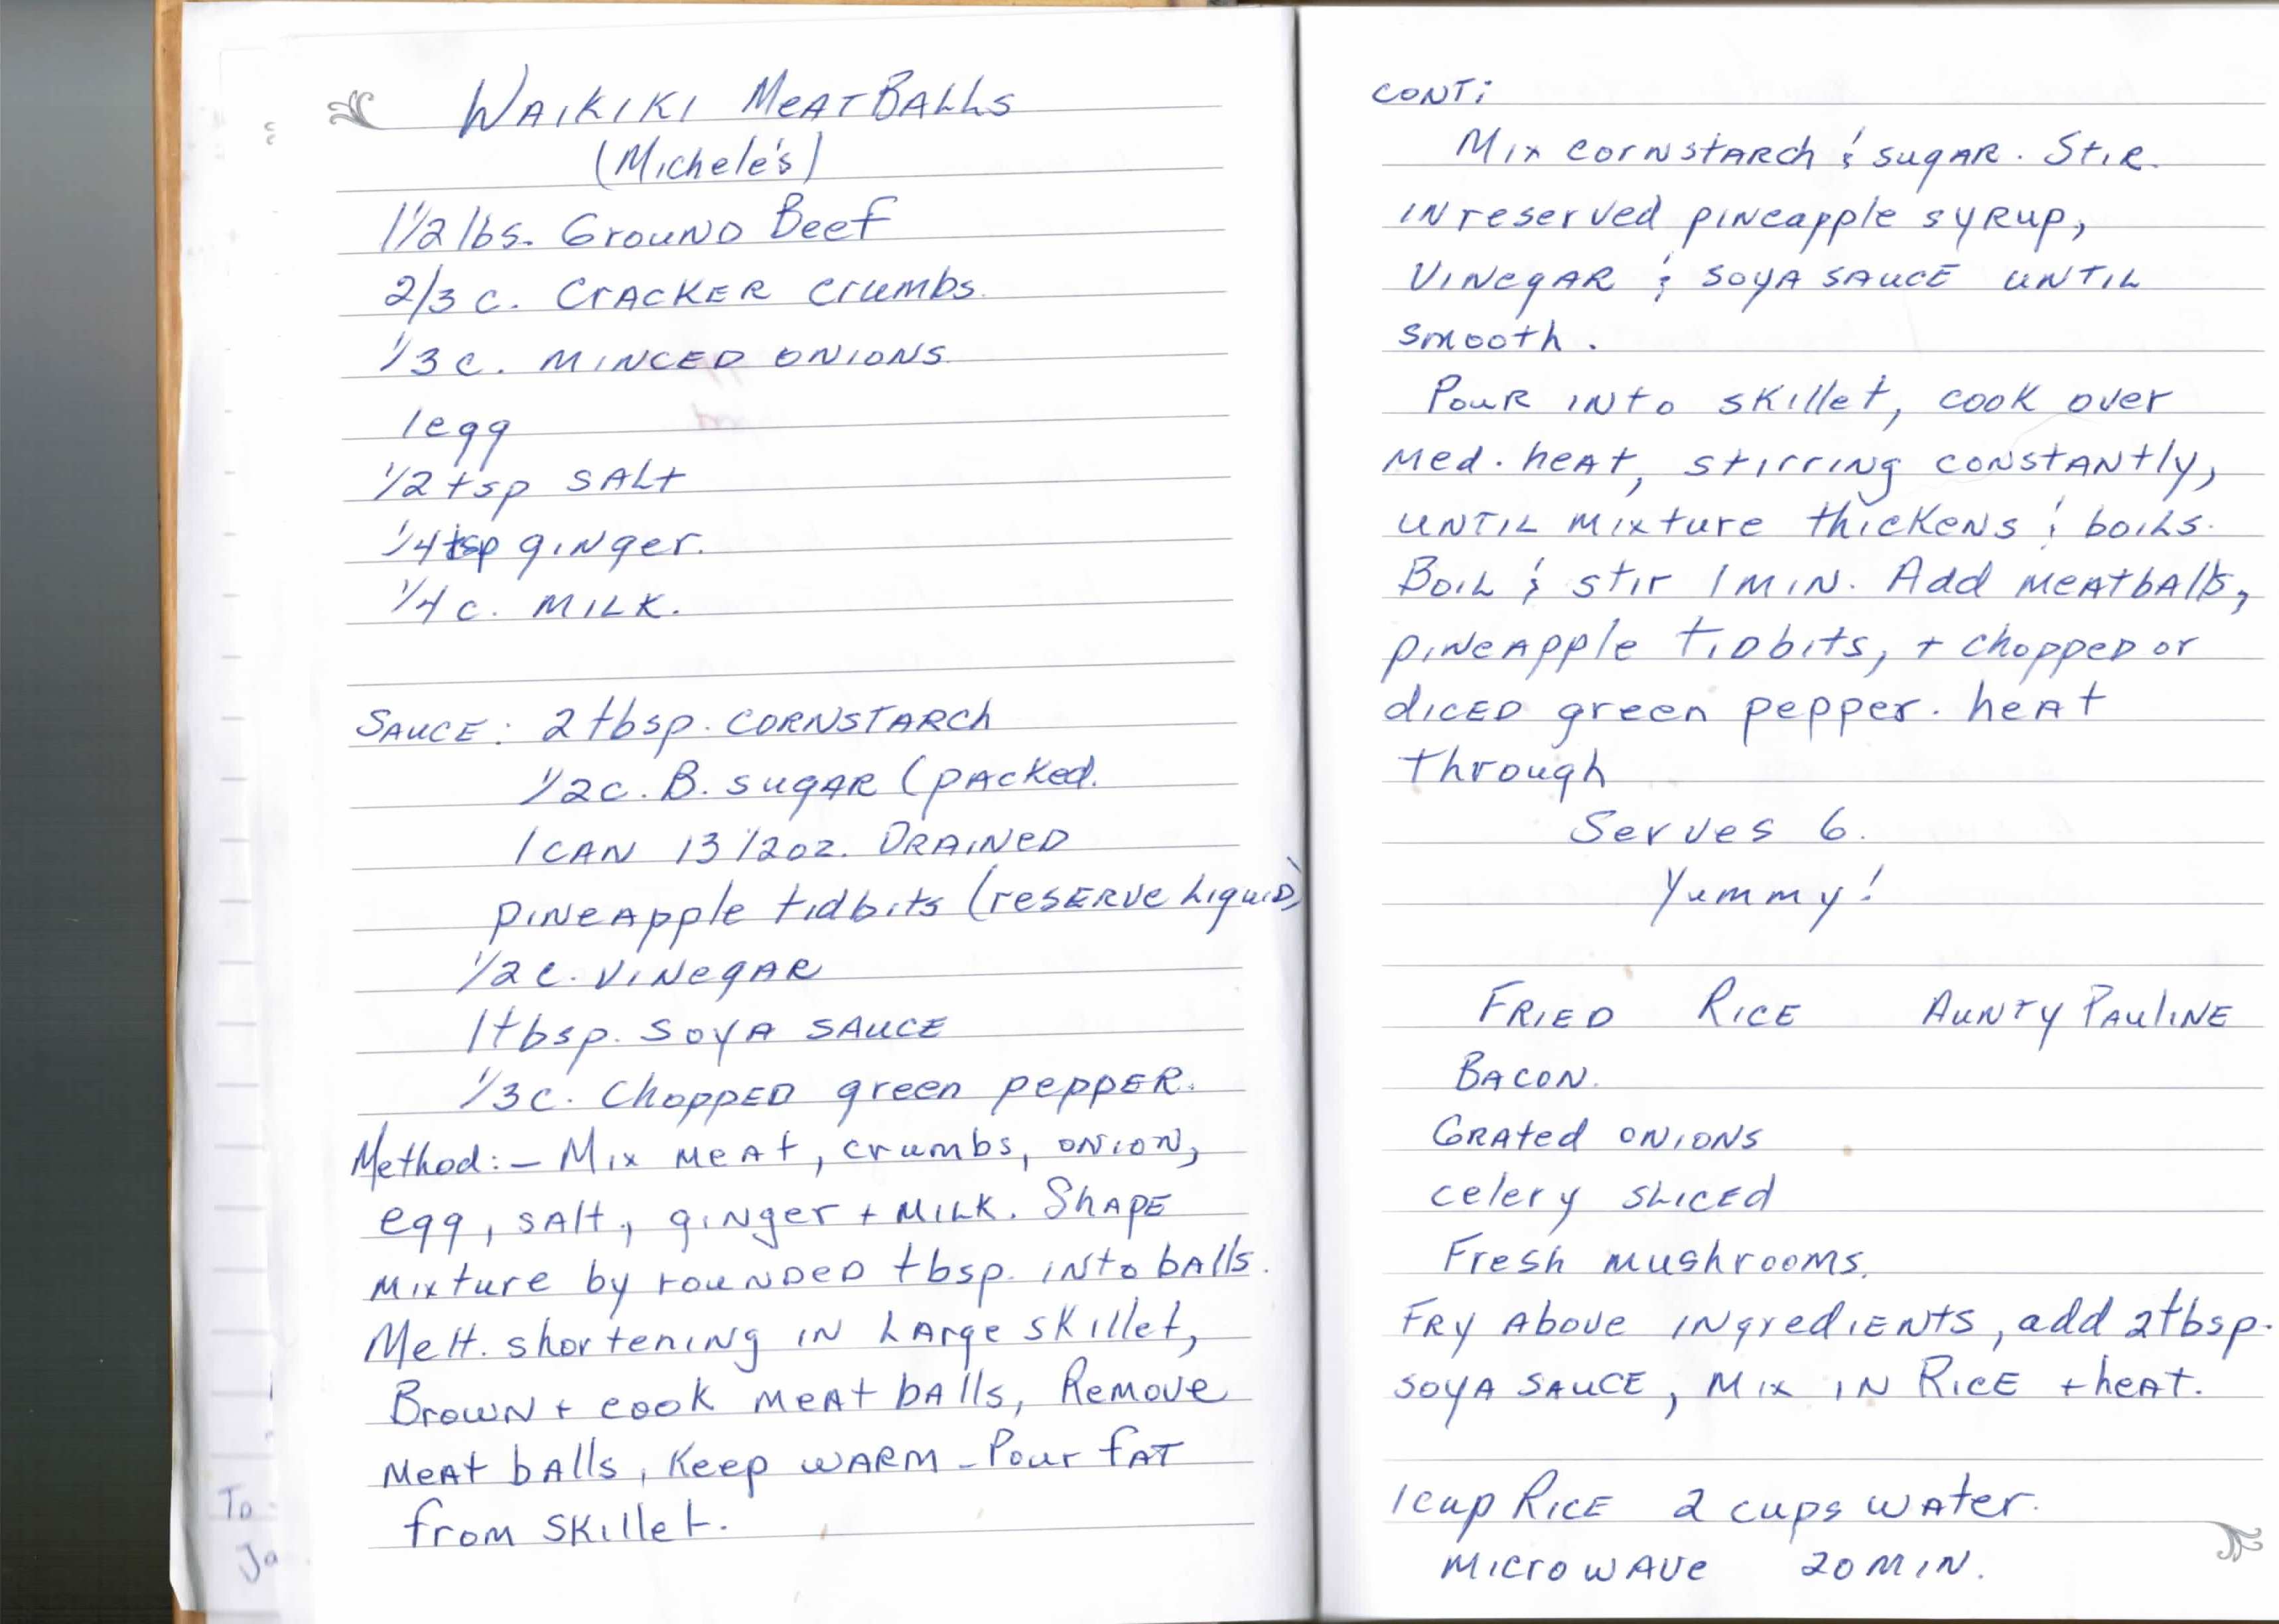 WAIKIKI MEATBALLS
(Michele's)
1 1/2 lbs. Ground Beef
2/3 c. Cracker crumbs.
1/3 c. minced onions.
1 egg
1/2 tsp salt
1/4 tsp ginger.
1/4 c. milk.
Sauce: 2 tbsp. cornstarch
1/2 c. B. sugar (packed.
1 can 13 1/2 oz. Drained
pineapple tidbits (reserve liquid)
1/2 c. vinegar
1 tbsp. soya sauce
1/3 c. chopped green pepper.
Method:- Mix meat, crumbs, onion,
egg, salt, ginger + milk. Shape
mixture by rounded tbsp. into balls.
Melt. shortening in large skillet,
Brown + cook meat balls, Remove
meat balls, keep warm - Pour fat
from skillet.
To
Ja
CONT:
Mix cornstarch & sugar. Stir
in reserved pineapple syrup,
vinegar & soya sauce until
smooth.
Pour into skillet, cook over
med. heat, stirring constantly,
until mixture thickens & boils.
Boil & stir 1 min. Add meatballs,
pineapple tidbits, + chopped or
diced green pepper. heat
through
Serves 6.
Yummy!
FRIED RICE Aunty Pauline
Bacon.
Grated onions
celery sliced
Fresh mushrooms.
Fry above ingredients, add 2 tbsp.
soya sauce, mix in Rice + heat.
1 cup Rice 2 cups water.
microwave 20 min.